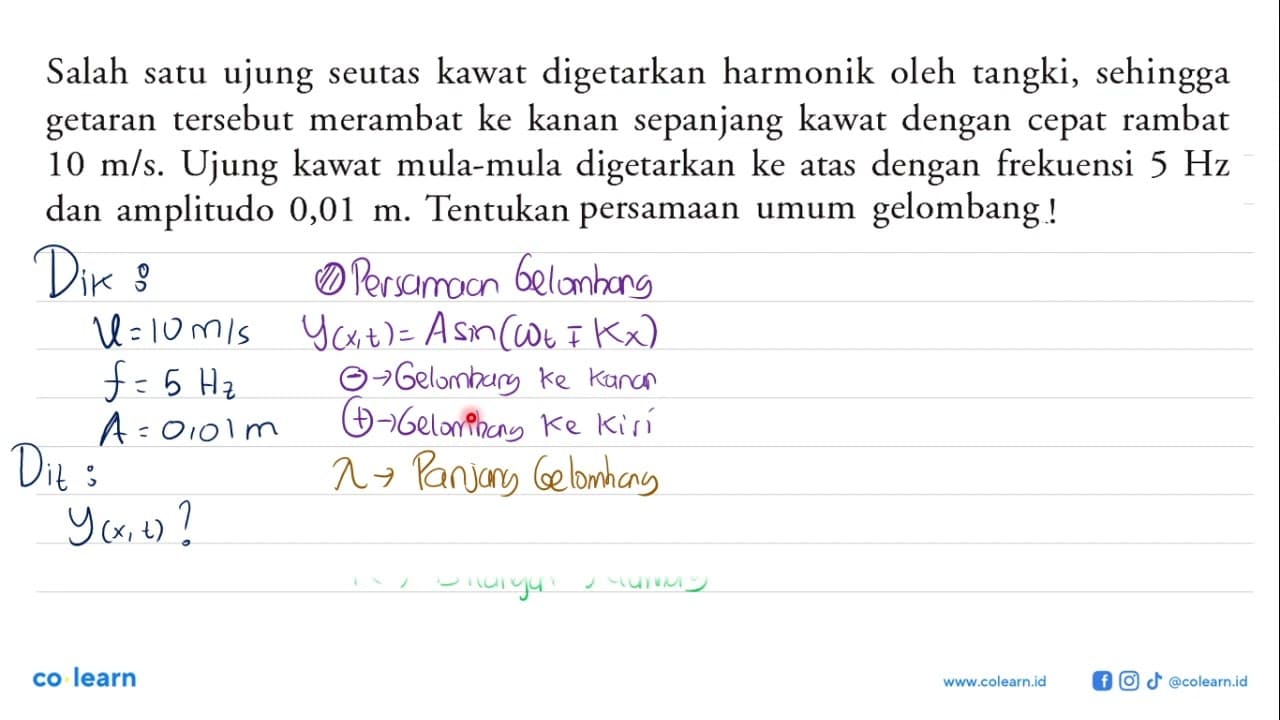 Salah satu ujung seutas kawat digetarkan harmonik oleh tangki, sehingga
getaran tersebut merambat ke kanan sepanjang kawat dengan cepat rambat
10 m/s. Ujung kawat mula-mula digetarkan ke atas dengan frekuensi 5 Hz
dan amplitudo 0,01 m. Tentukan persamaan umum gelombang!
Dik :
v = 10 m/s
f = 5 Hz
A = 0,01 m
Dit :
y(x, t) ?
Persamaan Gelombang
y(x, t) = A sin(ωt ∓ Kx)
⊖ → Gelombang ke kanan
(+) → Gelombang ke kiri
λ → Panjang Gelombang
co learn
www.colearn.id
@colearn.id